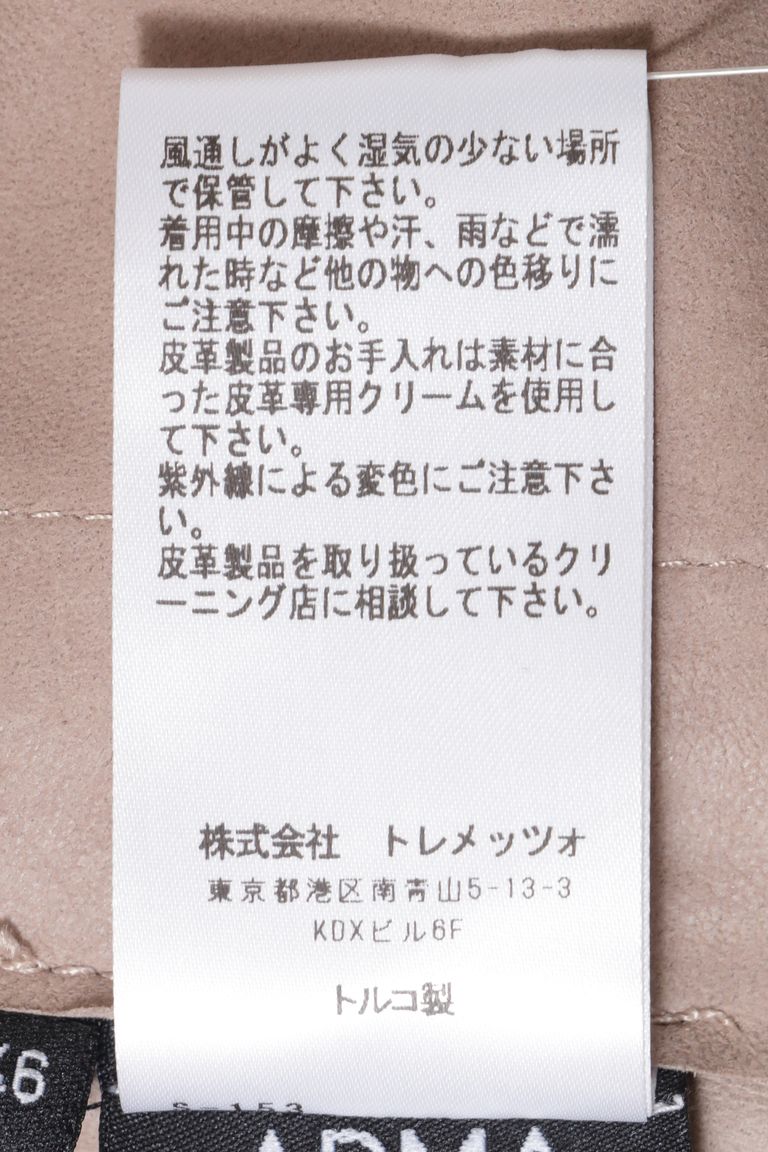 風通しがよく湿気の少ない場所
で保管して下さい。
着用中の摩擦や汗、雨などで濡
れた時など他の物への色移りに
ご注意下さい。
皮革製品のお手入れは素材に合
った皮革専用クリームを使用し
て下さい。
紫外線による変色にご注意下さ
い。
皮革製品を取り扱っているクリ
ーニング店に相談して下さい。
株式会社　トレメッツォ
東京都港区南青山5-13-3
KDXビル6F
トルコ製